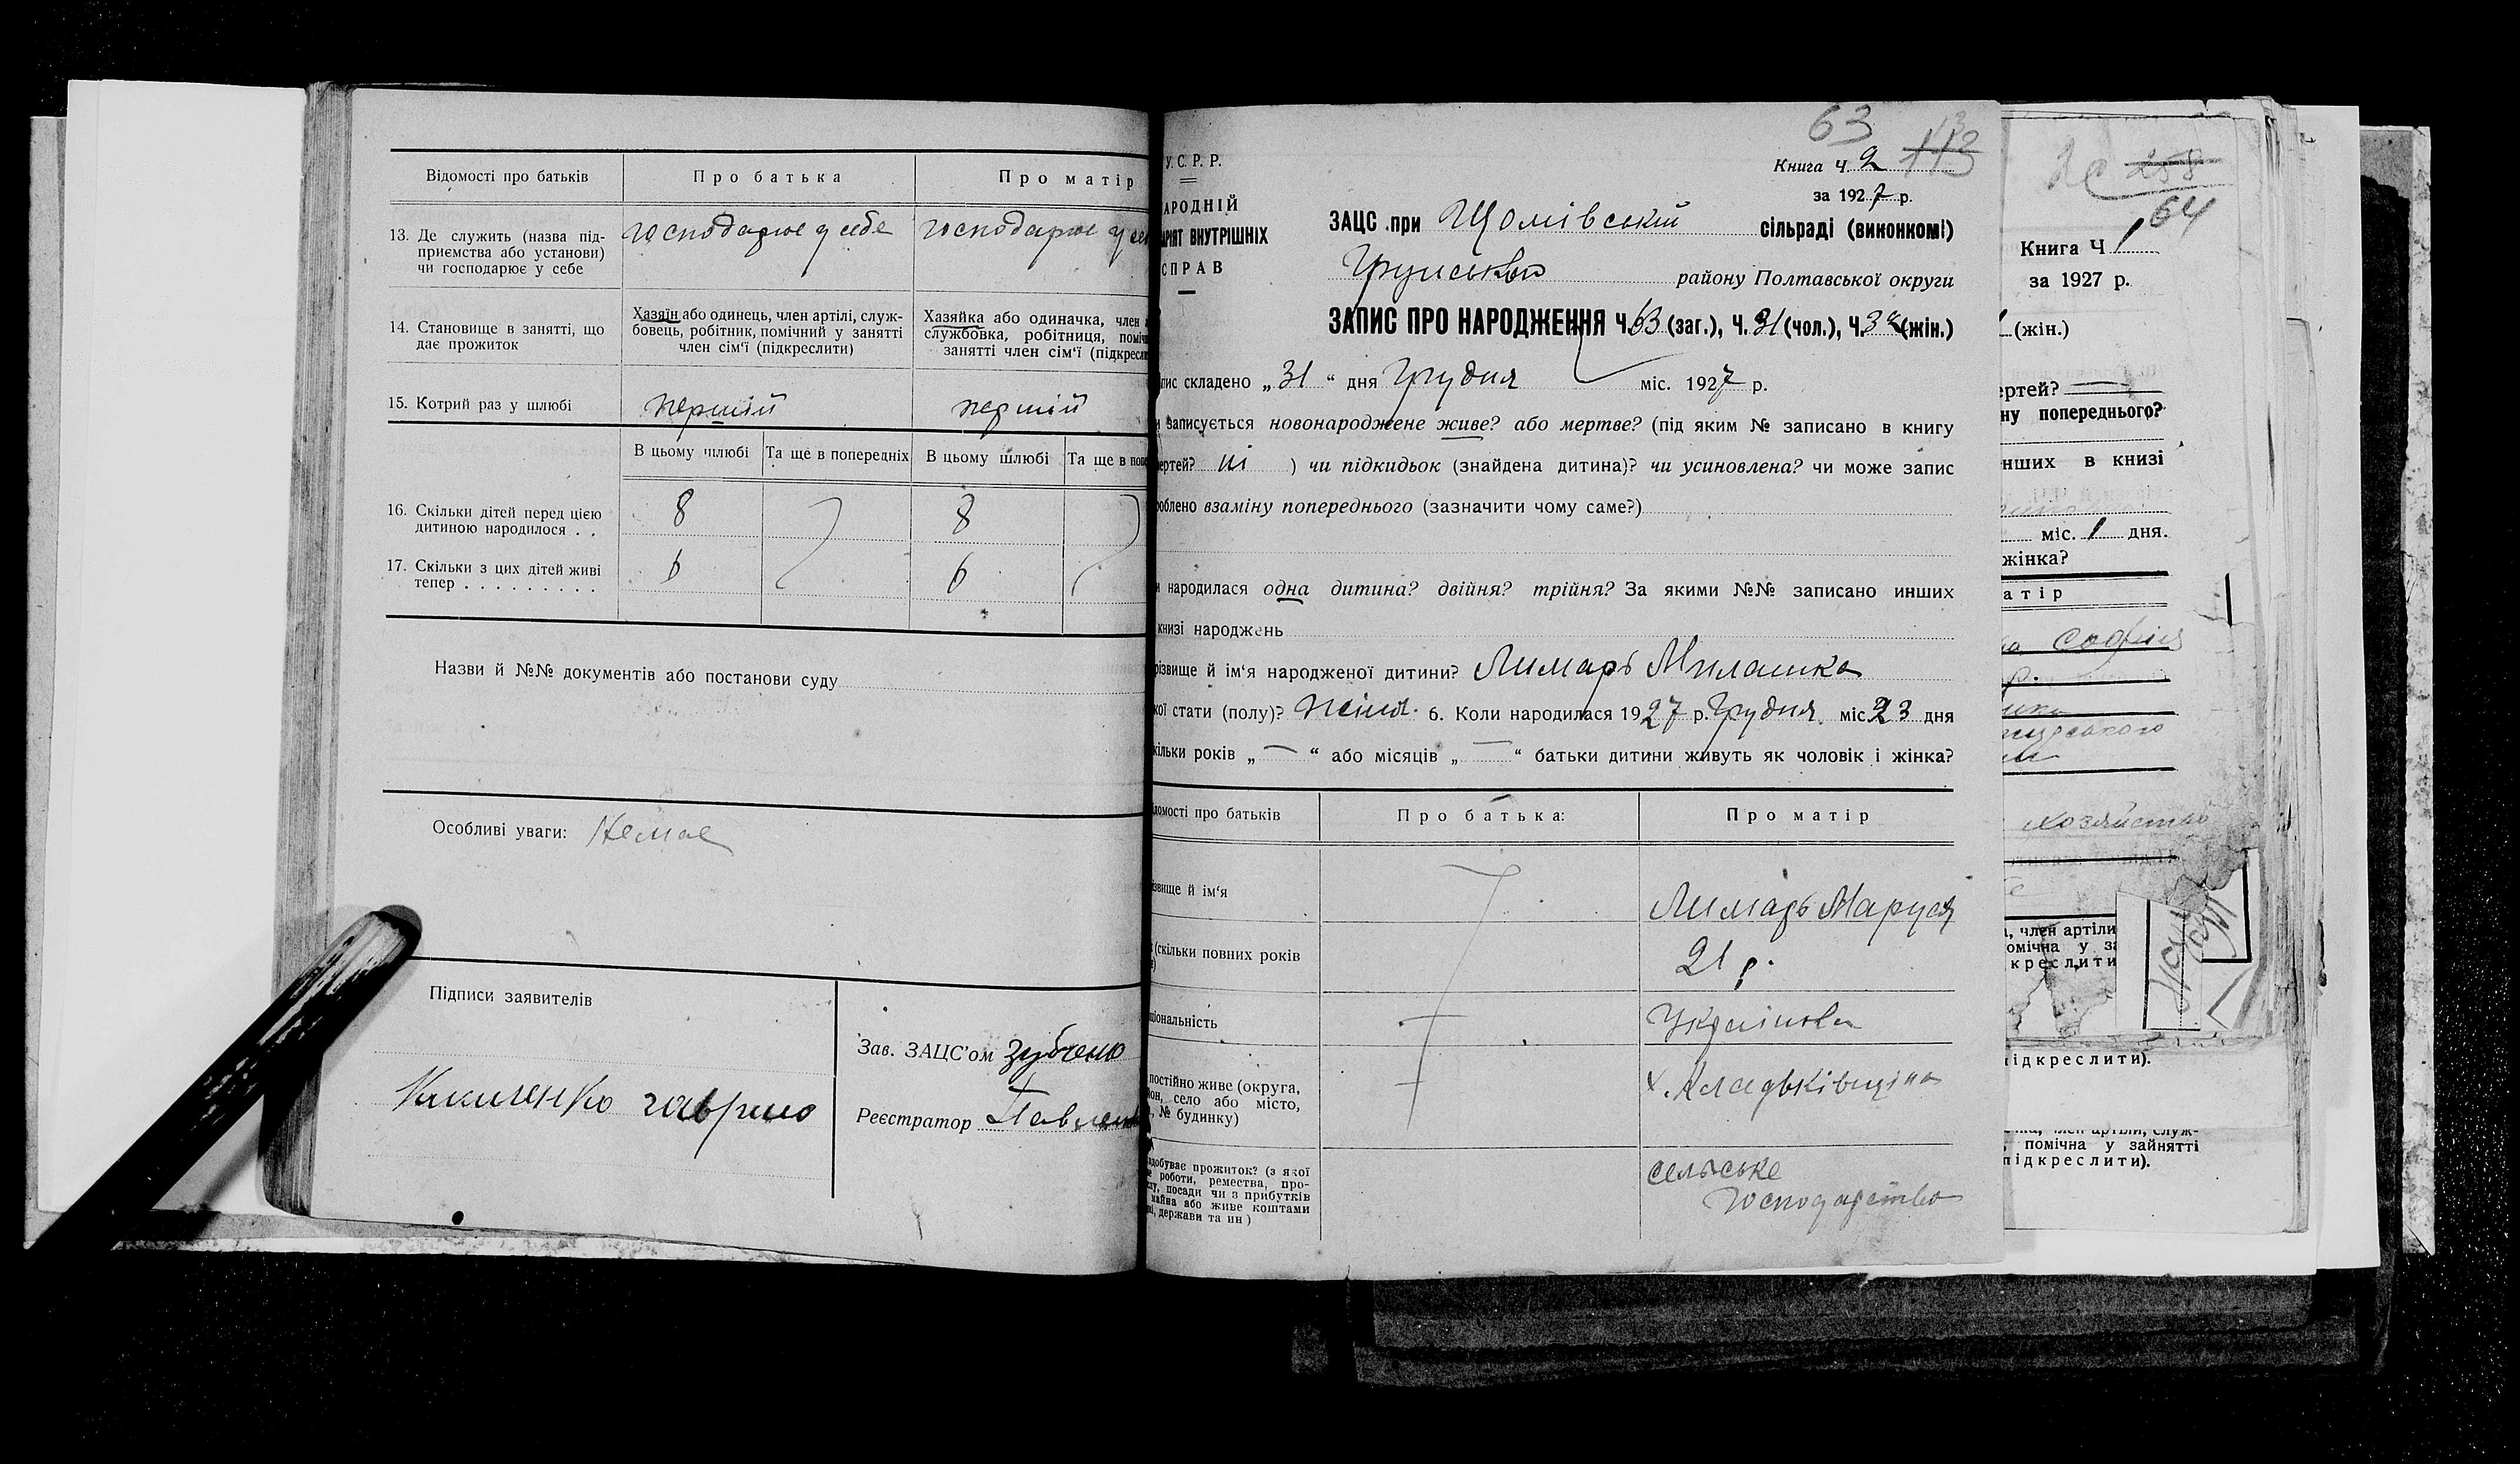 Відомості про батьків
Про батька
Про матір
13. Де служить (назва під-
приємства або установи)
чи господарює у себе
господарює у себе
господарює у
14. Становище в занятті, що
дає прожиток
Хазяїн або одинець, член артілі, служ-
бовець, робітник, помічний у занятті
член сім'ї (підкреслити)
Хазяйка або одиначка, член
службовка, робітниця, поміч
занятті член сім'ї (підкресли
15. Котрий раз у шлюбі
першій
першій
В цьому шлюбі
Та ще в попередніх
В цьому шлюбі
Та ще в попе
16. Скільки дітей перед цією
дитиною народилося . .
8
8
17. Скільки з цих дітей живі
тепер . . . . . . . . .
6
6
Назви й №№ документів або постанови суду
Особливі уваги: Немає
Підписи заявителів
гаврило
Зав. ЗАЦС'ом
Реєстратор
63
113
У.С.Р.Р.
АРОДНІЙ
АРІЯТ ВНУТРІШНІХ
СПРАВ
Книга Ч. 2
за 1927 р.
ЗАЦС при сільраді (виконкомі)
району Полтавської округи
ЗАПИС ПРО НАРОДЖЕННЯ Ч. 63 (заг.), Ч. 31 (чол.), Ч. (жін.)
пис складено „31“ дня Грудня міс. 1927 р.
и записується новонароджене живе? або мертве? (під яким № записано в книгу
ертей? ) чи підкидьок (знайдена дитина)? чи усиновлена? чи може запис
роблено взаміну попереднього (зазначити чому саме?)
и народилася одна дитина? двійня? трійня? За якими №№ записано инших
книзі народжень
різвище й ім'я народженої дитини? Лимарь Милашка
кої стати (полу)? Жіноч. 6. Коли народилася 1927 р. Грудня міс. 23 дня
кільки років „—“ або місяців „—“ батьки дитини живуть як чоловік і жінка?
домості про батьків
Про батька:
Про матір
ізвище й ім'я
Лимарь Маруся
(скільки повних років
21 р.
ціональність
Українка
постійно живе (округа,
йон, село або місто,
, № будинку)
добуває прожиток? (з якої
роботи, ремества, про-
лу, посади чи з прибутків
майна або живе коштами
ні, держави та ин)
сельське
господарство
258
64
Книга Ч 1
за 1927 р.
(жін.)
ертей? —
ну попереднього?
нших в книзі
міс. 1 дня.
жінка?
атір
Софія
р.
хозяйство
, член артіли
омічна у за
креслити
ідкреслити).
ка, член артіли, служ-
помічна у зайнятті
підкреслити).